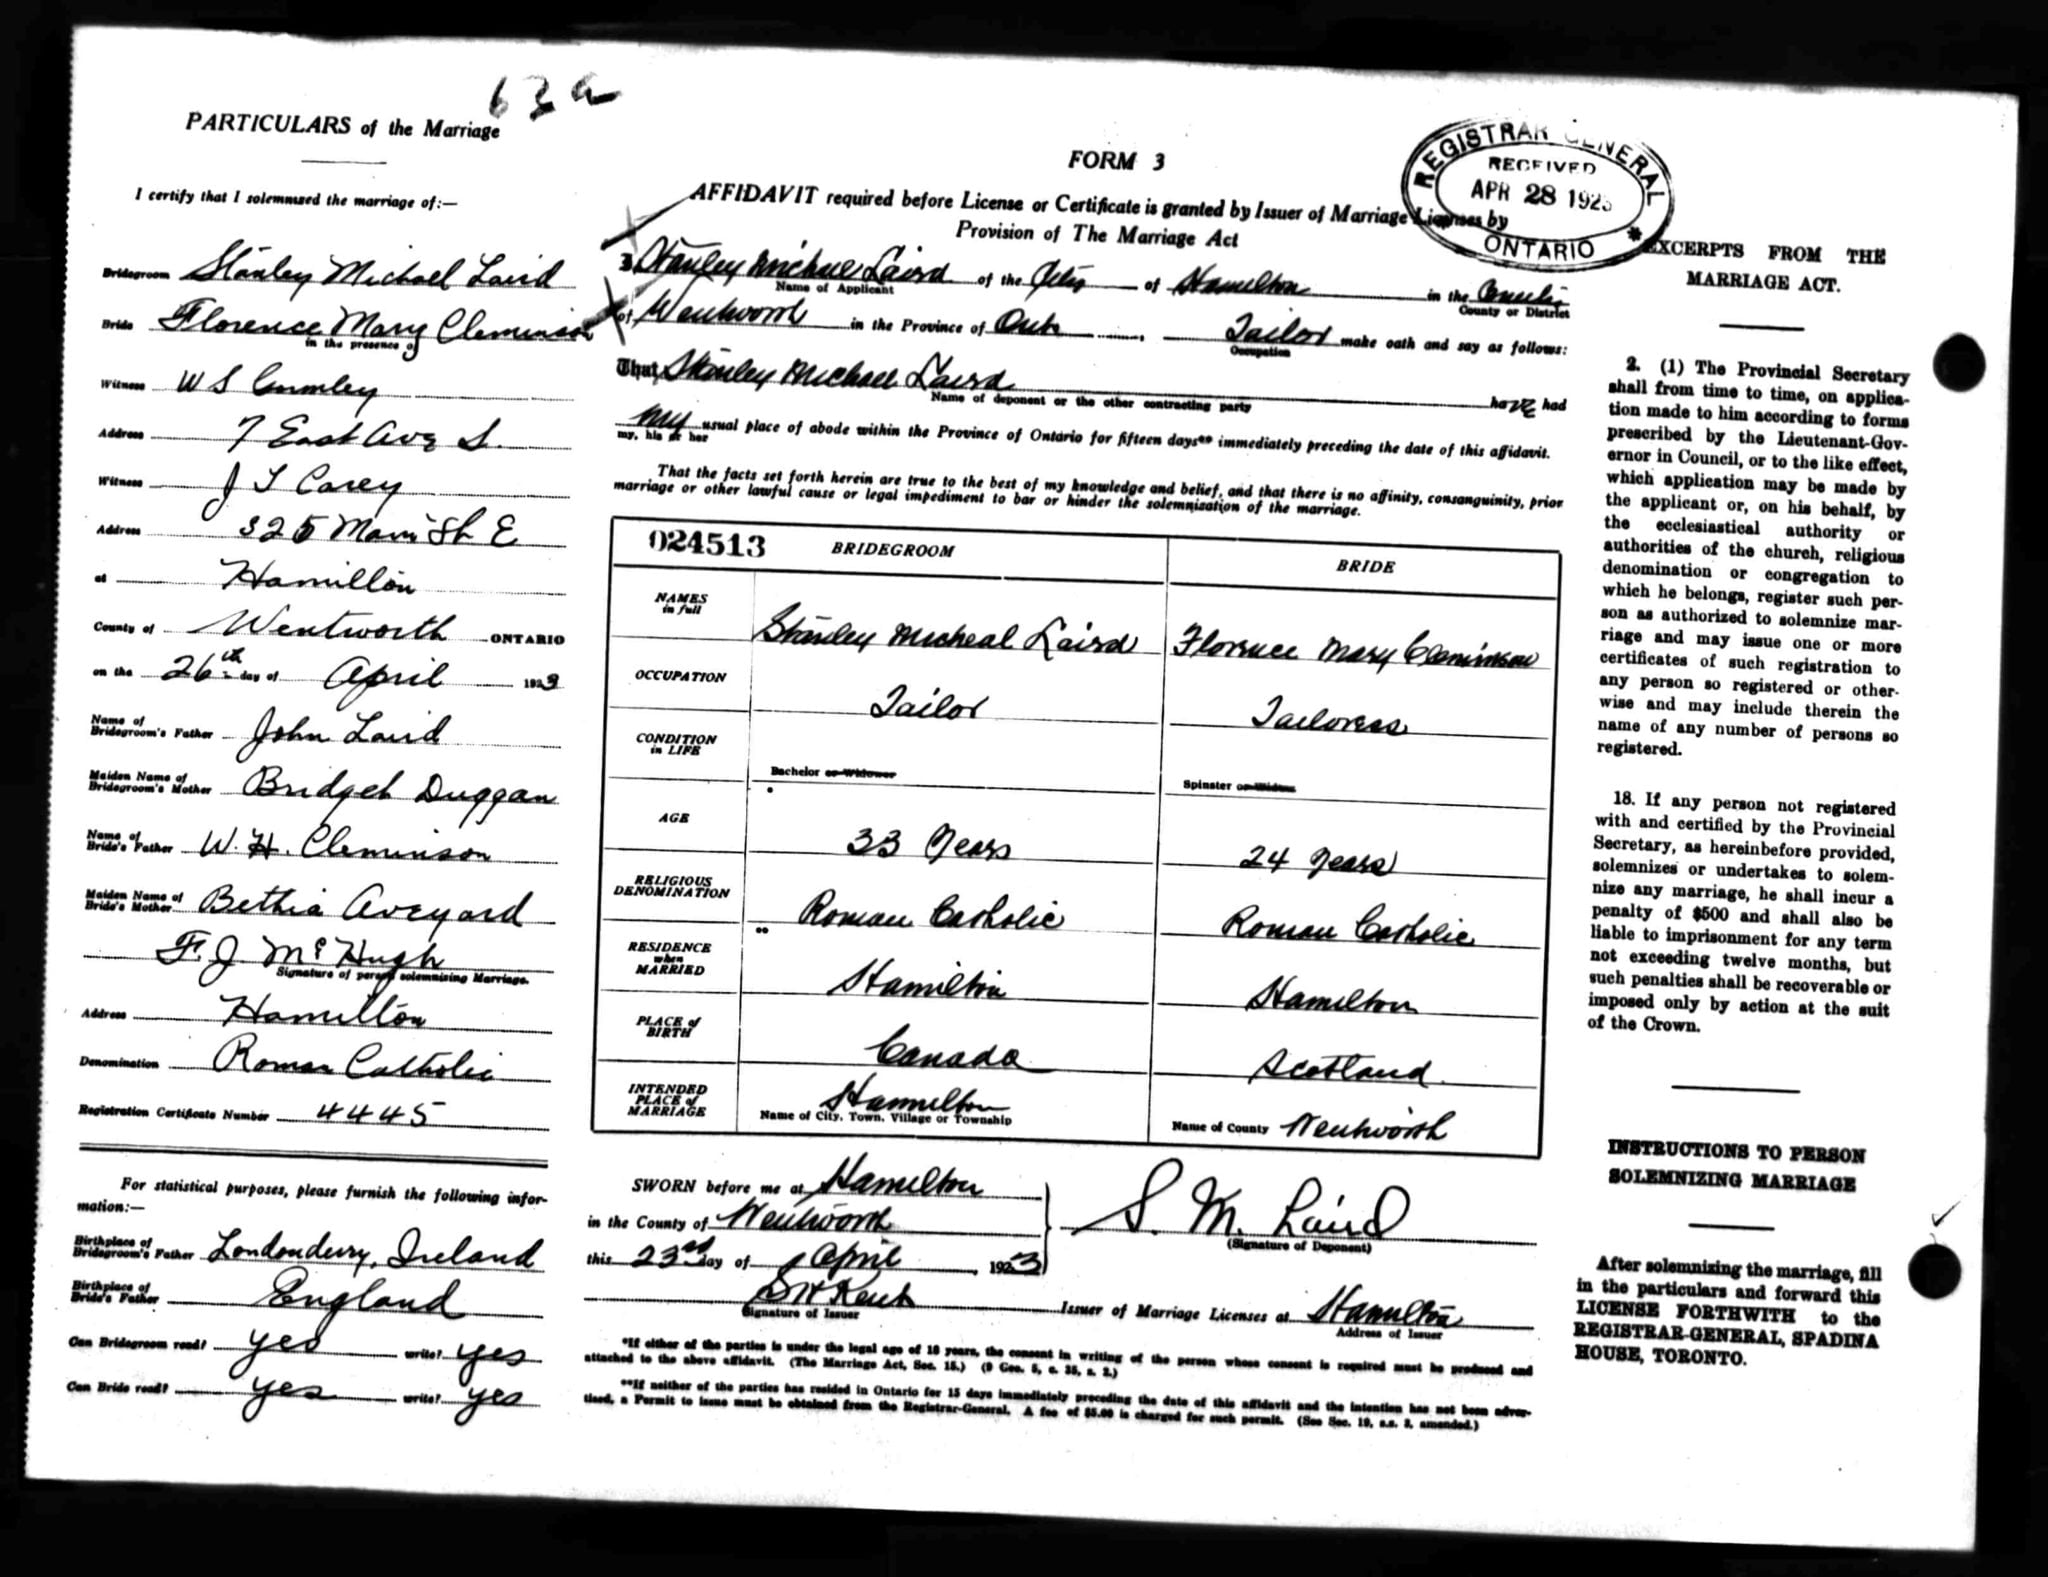 63a
PARTICULARS of the Marriage
I certify that I solemnized the marriage of:—
Bridegroom Stanley Michael Laird
Bride Florence Mary Cleminson
in the presence of
Witness W S Crumley
Address 7 East Ave S.
Witness J L Carey
Address 325 Main St E
at Hamilton
County of Wentworth ONTARIO
on the 26th day of April 1923
Name of
Bridegroom's Father John Laird
Maiden Name of
Bridegroom's Mother Bridget Duggan
Name of
Bride's Father W. H. Cleminson
Maiden Name of
Bride's Mother Bethia Aveyard
F. J. McHugh
Signature of person solemnizing Marriage.
Address Hamilton
Denomination Roman Catholic
Registration Certificate Number 4445
For statistical purposes, please furnish the following infor-
mation:—
Birthplace of
Bridegroom's Father Londonderry, Ireland
Birthplace of
Bride's Father England
Can Bridegroom read? yes write? yes
Can Bride read? yes write? yes
FORM 3
AFFIDAVIT required before License or Certificate is granted by Issuer of Marriage Licenses by
Provision of The Marriage Act
REGISTRAR GENERAL
RECEIVED
APR 28 1923
ONTARIO
I Stanley Michael Laird of the City of Hamilton in the County
Name of Applicant
County or District
of Wentworth in the Province of Ont Tailor make oath and say as follows:
Occupation
That Stanley Michael Laird have had
Name of deponent or the other contracting party
my usual place of abode within the Province of Ontario for fifteen days** immediately preceding the date of this affidavit.
my, his or her
That the facts set forth herein are true to the best of my knowledge and belief, and that there is no affinity, consanguinity, prior
marriage or other lawful cause or legal impediment to bar or hinder the solemnization of the marriage.
024513 BRIDEGROOM BRIDE
NAMES
in full
Stanley Micheal Laird Florence Mary Cleminson
OCCUPATION
Tailor Tailoress
CONDITION
in LIFE
Bachelor or Widower Spinster or Widow
AGE
33 Years 24 Years
RELIGIOUS
DENOMINATION
Roman Catholic Roman Catholic
RESIDENCE
when
MARRIED
Hamilton Hamilton
PLACE of
BIRTH
Canada Scotland
INTENDED
PLACE of
MARRIAGE
Hamilton
Name of City, Town, Village or Township
Name of County Wentworth
SWORN before me at Hamilton
in the County of Wentworth
this 23rd day of April 1923
S. M. Laird
(Signature of Deponent)
S H Kent
Signature of Issuer
Issuer of Marriage Licenses at Hamilton
Address of Issuer
*If either of the parties is under the legal age of 18 years, the consent in writing of the person whose consent is required must be produced and
attached to the above affidavit. (The Marriage Act, Sec. 15.) (9 Geo. 5, c. 35, s. 2.)
**If neither of the parties has resided in Ontario for 15 days immediately preceding the date of this affidavit and the intention has not been adver-
tised, a Permit to issue must be obtained from the Registrar-General. A fee of $5.00 is charged for such permit. (See Sec. 19, s.s. 3, amended.)
EXCERPTS FROM THE
MARRIAGE ACT.
2. (1) The Provincial Secretary
shall from time to time, on applica-
tion made to him according to forms
prescribed by the Lieutenant-Gov-
ernor in Council, or to the like effect,
which application may be made by
the applicant or, on his behalf, by
the ecclesiastical authority or
authorities of the church, religious
denomination or congregation to
which he belongs, register such per-
son as authorized to solemnize mar-
riage and may issue one or more
certificates of such registration to
any person so registered or other-
wise and may include therein the
name of any number of persons so
registered.
18. If any person not registered
with and certified by the Provincial
Secretary, as hereinbefore provided,
solemnizes or undertakes to solem-
nize any marriage, he shall incur a
penalty of $500 and shall also be
liable to imprisonment for any term
not exceeding twelve months, but
such penalties shall be recoverable or
imposed only by action at the suit
of the Crown.
INSTRUCTIONS TO PERSON
SOLEMNIZING MARRIAGE
After solemnizing the marriage, fill
in the particulars and forward this
LICENSE FORTHWITH to the
REGISTRAR-GENERAL, SPADINA
HOUSE, TORONTO.